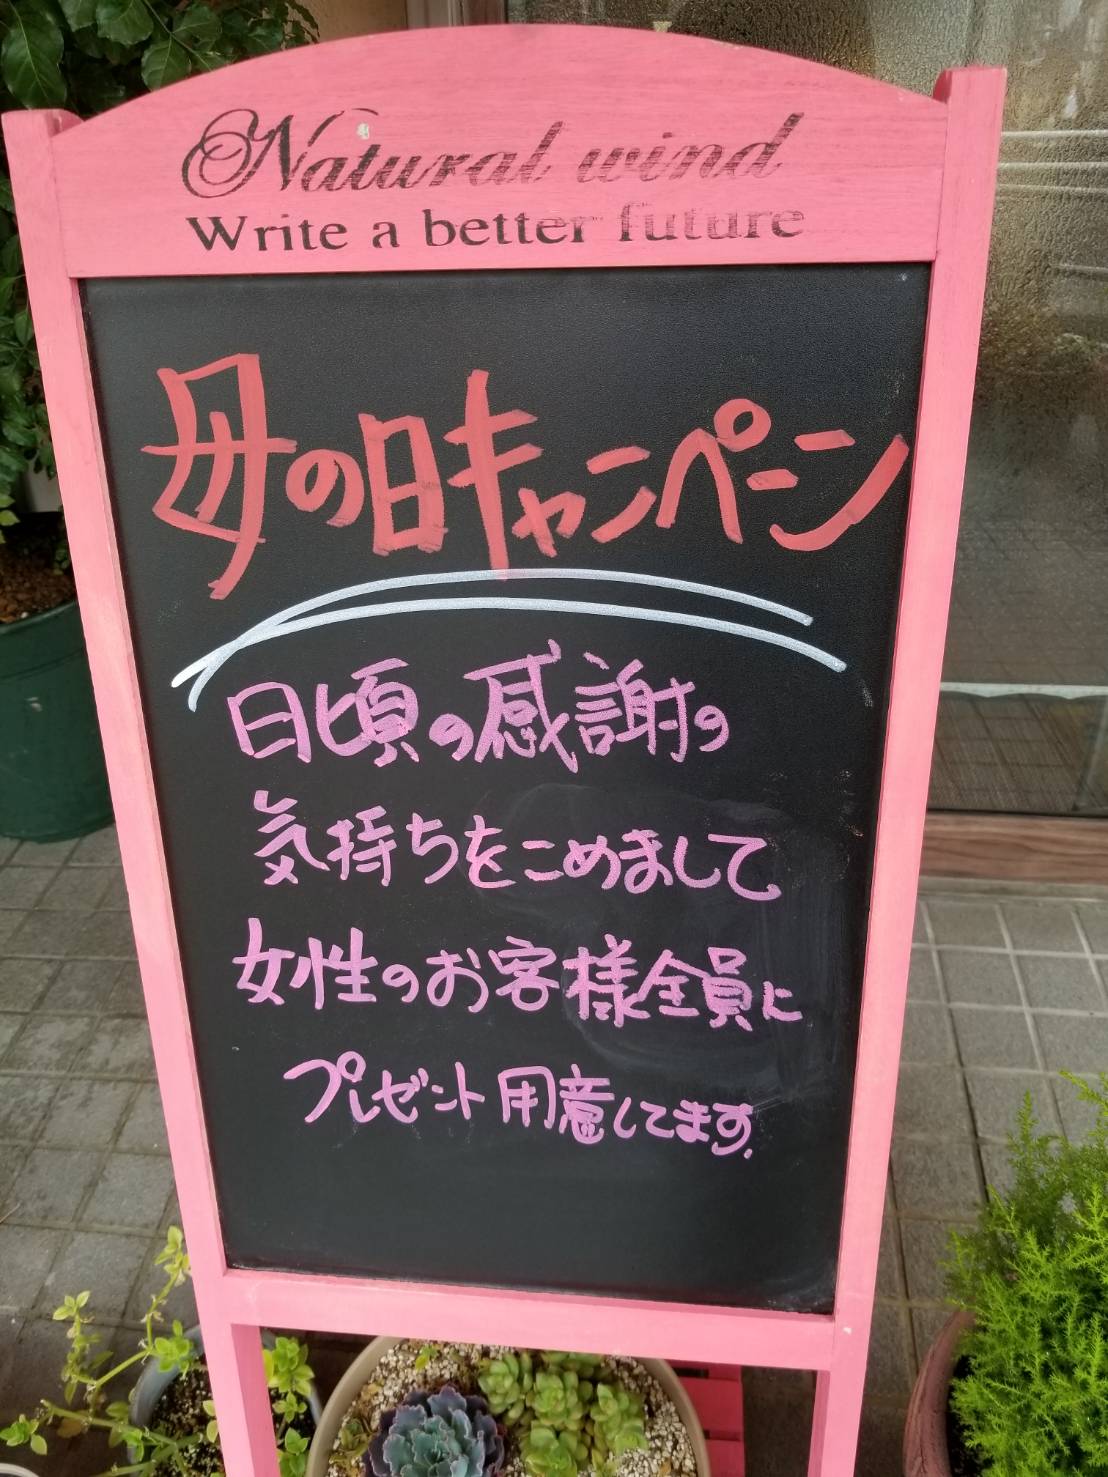 Natural wind
Write a better future
母の日キャンペーン
日頃の感謝の
気持ちをこめまして
女性のお客様全員に
プレゼント用意してます.